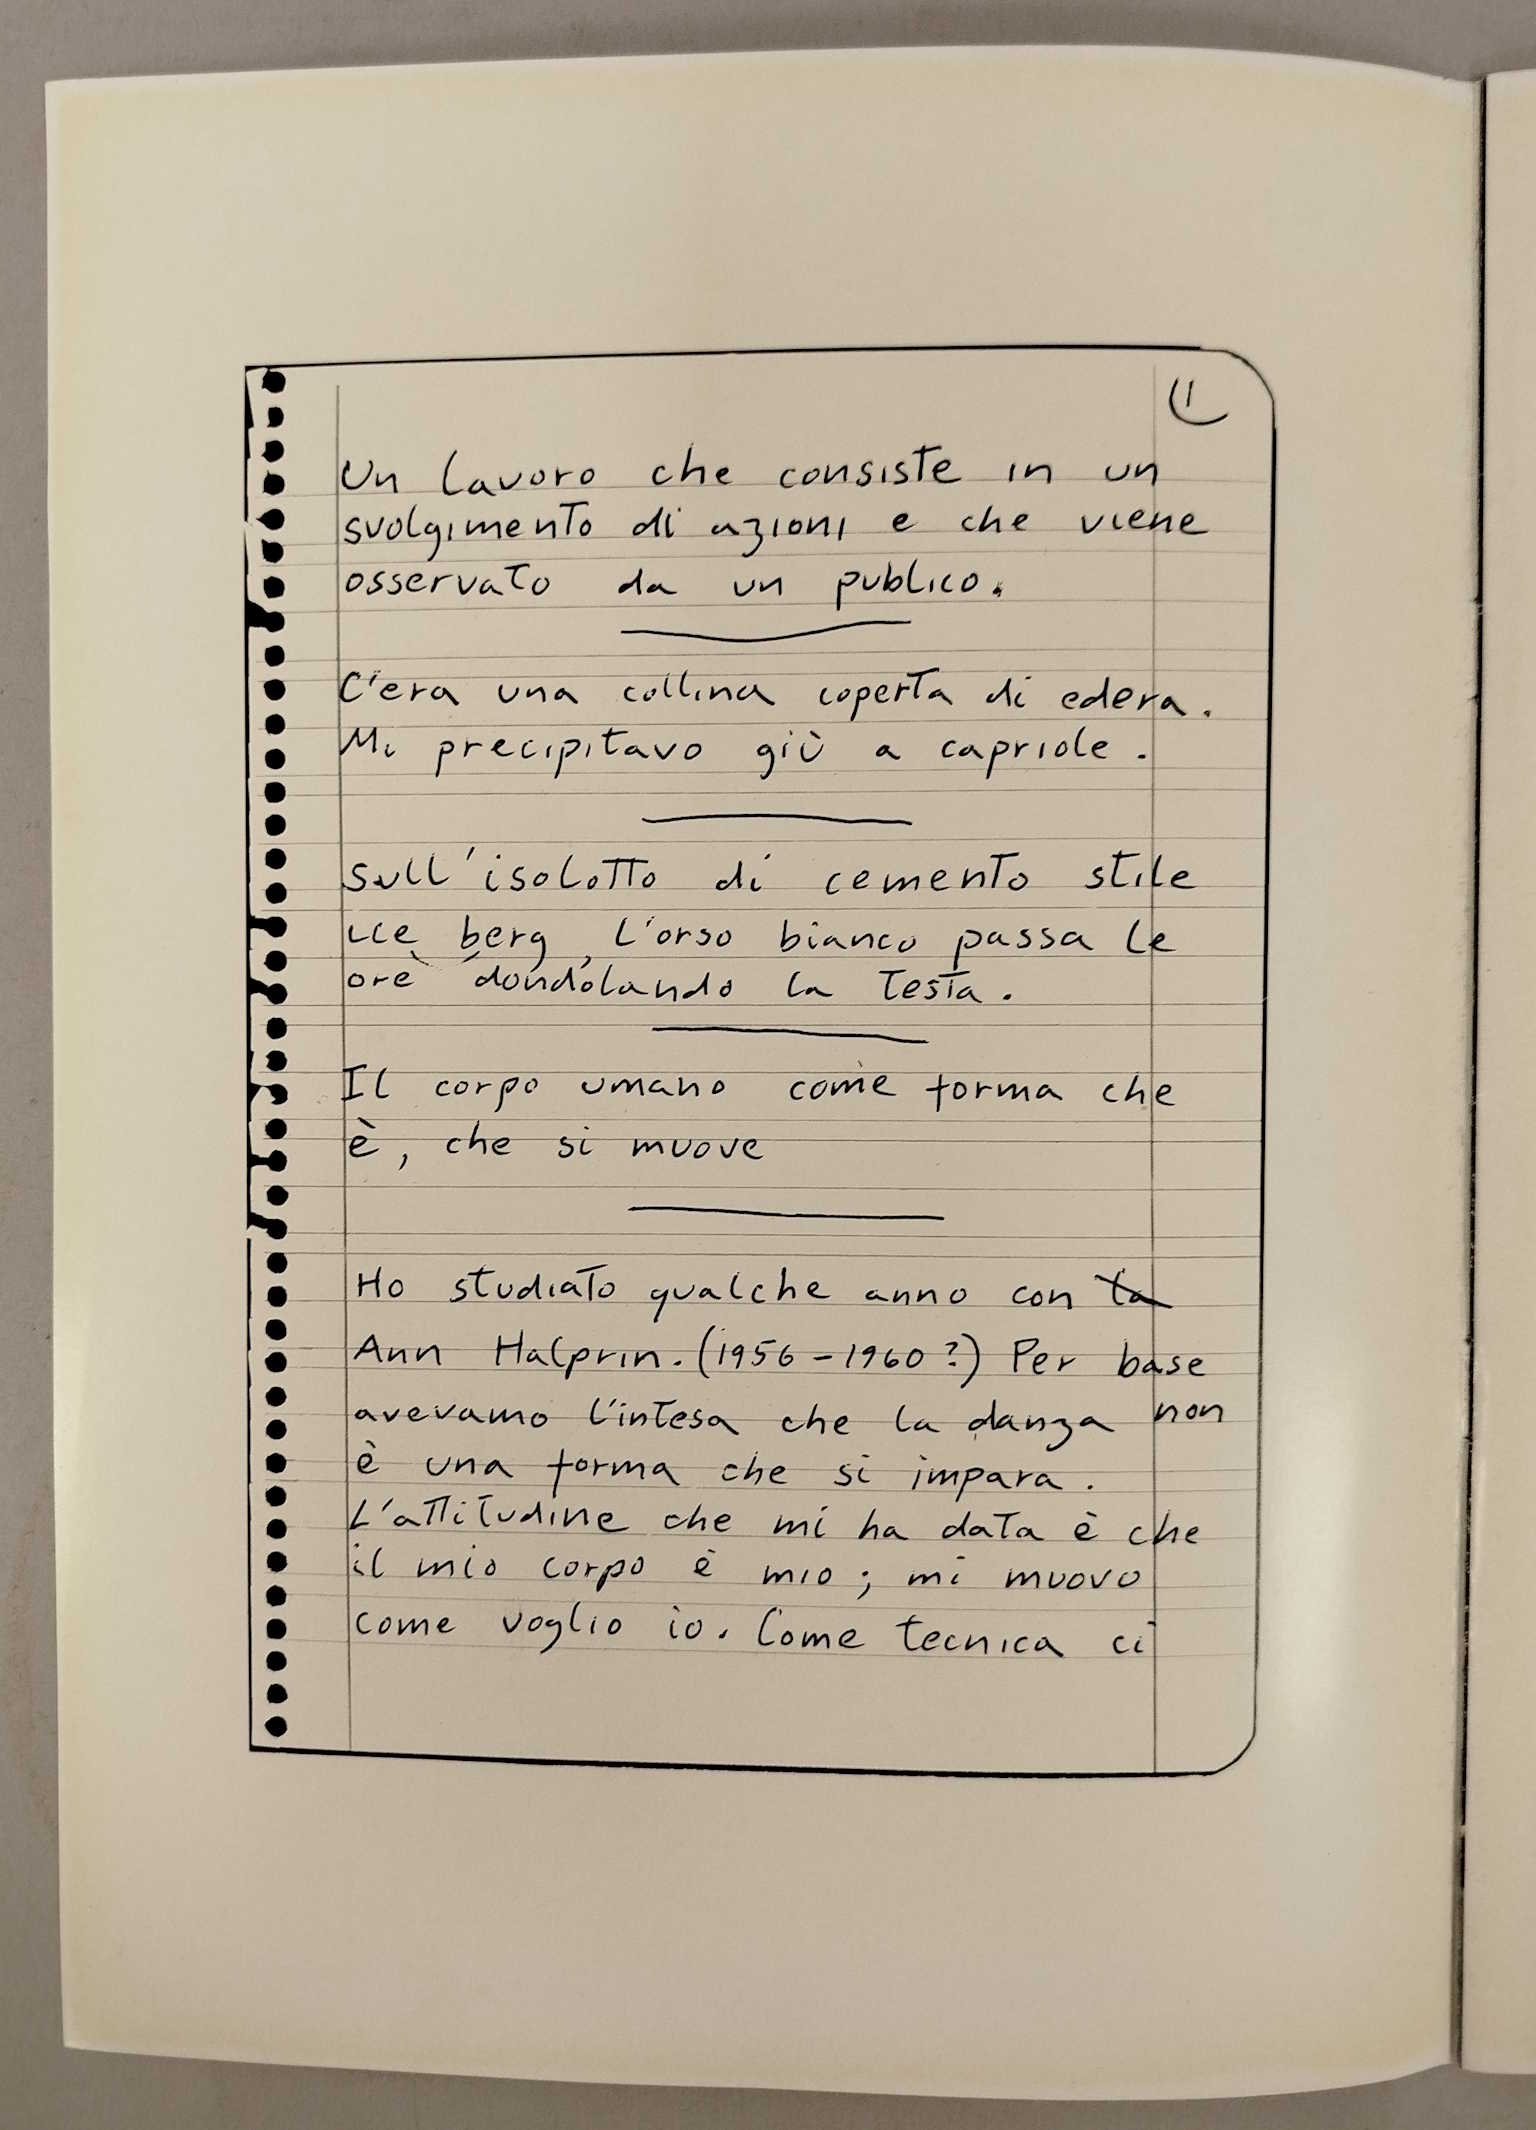 1
Un lavoro che consiste in un
svolgimento di azioni e che viene
osservato da un publico.
C'era una collina coperta di edera.
Mi precipitavo giù a capriole.
Sull'isolotto di cemento stile
ice berg, l'orso bianco passa le
ore dondolando la testa.
Il corpo umano come forma che
è, che si muove
Ho studiato qualche anno con la
Ann Halprin. (1956-1960?) Per base
avevamo l'intesa che la danza non
è una forma che si impara.
L'attitudine che mi ha data è che
il mio corpo è mio; mi muovo
come voglio io. Come tecnica ci